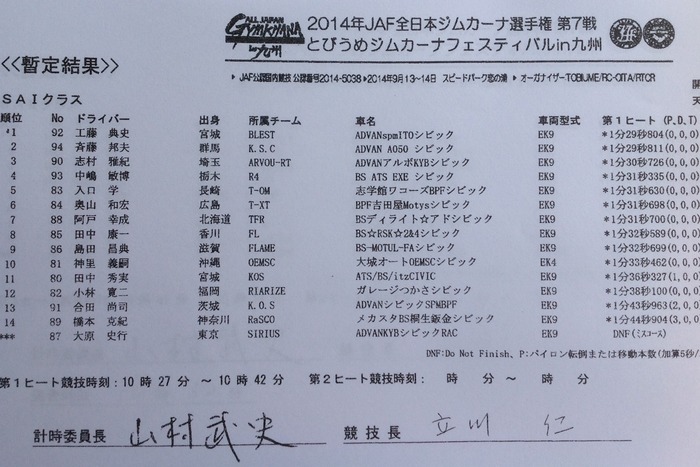 ALL JAPAN GYMKHANA in九州
2014年JAF全日本ジムカーナ選手権 第7戦
とびうめジムカーナフェスティバルin九州
<<暫定結果>>
▶JAF公認国内競技 公認番号2014-5038 ▶2014年9月13～14日 スピードパーク恋の浦 ▶オーガナイザーTOBIUME/RC-OITA/RTCR
SAIクラス
順位 No ドライバー 出身 所属チーム 車名 車両型式 第1ヒート(P.D.T)
*1 92 工藤 典史 宮城 BLEST ADVANspmITOシビック EK9 *1分29秒804(0,0,0)
2 94 斉藤 邦夫 群馬 K.S.C ADVAN A050 シビック EK9 *1分29秒811(0,0,0)
3 90 志村 雅紀 埼玉 ARVOU-RT ADVANアルボKYBシビック EK9 *1分30秒726(0,0,0)
4 93 中嶋 敏博 栃木 R4 BS ATS EXE シビック EK9 *1分31秒335(0,0,0)
5 83 入口 学 長崎 T-OM 志学館ワコーズBPFシビック EK9 *1分31秒630(0,0,0)
6 84 奥山 和宏 広島 T-XT BPF吉田屋Motysシビック EK9 *1分31秒698(0,0,0)
7 88 阿戸 幸成 北海道 TFR BSディライト☆アドシビック EK9 *1分31秒700(0,0,0)
8 85 田中 康一 香川 FL BS☆RSK☆2&4シビック EK9 *1分32秒589(0,0,0)
9 86 島田 昌典 滋賀 FLAME BS-MOTUL-FAシビック EK9 *1分32秒699(0,0,0)
10 81 神里 義嗣 沖縄 OEMSC 大城オートOEMSCシビック EK4 *1分33秒462(0,0,0)
11 80 田中 秀実 宮城 KOS ATS/BS/itzCIVIC EK9 *1分36秒327(1,0,0)
12 82 小林 寛二 福岡 RIARIZE ガレージつかさシビック EK9 *1分38秒100(0,0,0)
13 91 合田 尚司 茨城 K.O.S ADVANシビックSPMBPF EK9 *1分43秒963(2,0,0)
14 89 橋本 克紀 神奈川 RaSCO メカスタBS桐生鈑金シビック EK9 *1分44秒904(3,0,0)
*** 87 大原 史行 東京 SIRIUS ADVANKYBシビックRAC EK9 DNF(ミスコース)
DNF:Do Not Finish、P:パイロン転倒または移動本数(加算5秒/
第1ヒート競技時刻:10時27分 ～10時42分 第2ヒート競技時刻: 時 分～ 時 分
計時委員長 山村武史 競技長 立川 仁